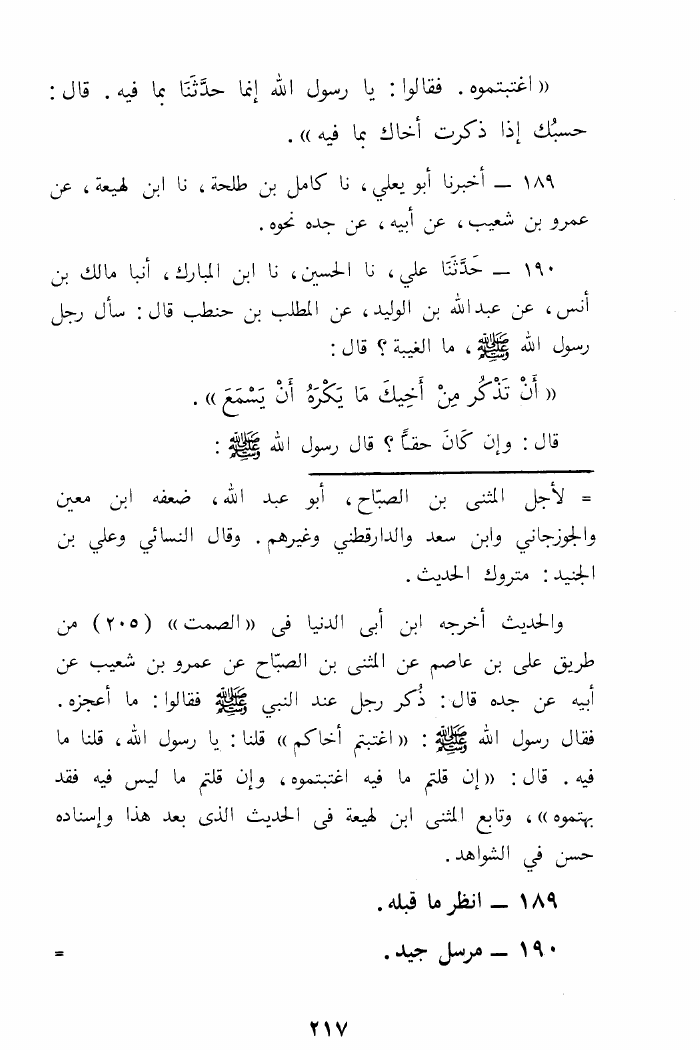 «اغتبتموه. فقالوا: يا رسول الله إنما حدَّثَنَا بما فيه. قال:
حسبُك إذا ذكرت أخاك بما فيه».
١٨٩ ــ أخبرنا أبو يعلي، نا كامل بن طلحة، نا ابن لهيعة، عن
عمرو بن شعيب، عن أبيه، عن جده نحوه.
١٩٠ ــ حَدَّثَنَا علي، نا الحسين، نا ابن المبارك، أنبا مالك بن
أنس، عن عبدالله بن الوليد، عن المطلب بن حنطب قال: سأل رجل
رسول الله ﷺ، ما الغيبة؟ قال:
«أَنْ تَذْكُر مِنْ أَخِيكَ مَا يَكْرَهُ أَنْ يَسْمَعَ».
قال: وإن كَانَ حقاً؟ قال رسول الله ﷺ:
= لأجل المثنى بن الصبّاح، أبو عبد الله، ضعفه ابن معين
والجوزجاني وابن سعد والدارقطني وغيرهم. وقال النسائي وعلي بن
الجنيد: متروك الحديث.
والحديث أخرجه ابن أبى الدنيا فى «الصمت» (٢٠٥) من
طريق على بن عاصم عن المثنى بن الصبّاح عن عمرو بن شعيب عن
أبيه عن جده قال: ذُكر رجل عند النبي ﷺ فقالوا: ما أعجزه.
فقال رسول الله ﷺ: «اغتبتم أخاكم» قلنا: يا رسول الله، قلنا ما
فيه. قال: «إن قلتم ما فيه اغتبتموه، وإن قلتم ما ليس فيه فقد
بهتموه»، وتابع المثنى ابن لهيعة فى الحديث الذى بعد هذا وإسناده
حسن في الشواهد.
١٨٩ ــ انظر ما قبله.
١٩٠ ــ مرسل جيد. =
٢١٧